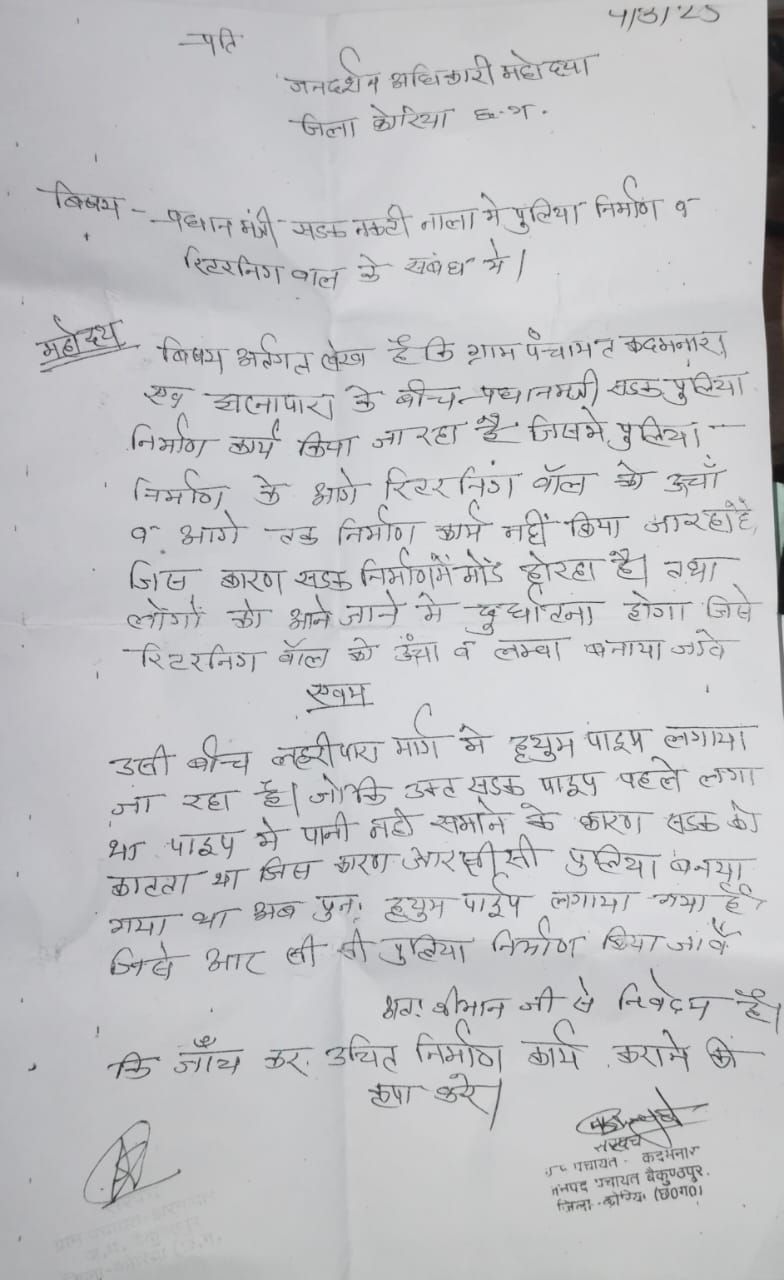 4/3/25
प्रति
जनदर्शन अधिकारी महोदया
जिला कोरिया छ.ग.
विषय - प्रधान मंत्री सडक नकटी नाला मे पुलिया निर्माण व
रिटरनिग वाल के सबंध मे।
महोदय
विषय अर्तगत लेख है कि ग्राम पंचायत कदमनारा
एव झरनापारा के बीच प्रधानमंत्री सडक पुलिया
निर्माण कार्य किया जा रहा है जिसमे पुलिया
निर्माण के आगे रिटरनिंग वॉल को उचाँ
व आगे तक निर्माण कार्य नहीं किया जा रहा है,
जिस कारण सडक निर्माण में मोड हो रहा है। तथा
लोगों को आने जाने मे दुर्घटना होगा जिसे
रिटरनिग वॉल को उंचा व लम्बा बनाया जावे
एवम
उसी बीच नहरीपारा मार्ग मे ह्युम पाइप लगाया
जा रहा है। जोकि उक्त सडक पाइप पहले लगा
था पाइप मे पानी नही समाने के कारण सडक को
काटता था जिस कारण आर सी सी पुलिया बनया
गया था अब पुन: ह्युम पाईप लगाया गया है,
जिसे आर सी सी पुलिया निर्माण किया जावें
अत: श्रीमान जी से निवेदन है।
कि जाँच कर, उचित निर्माण कार्य कराने की
कृपा करे।
सरपंच
पंचायत - कदमनारा
जनपद पंचायत बैकुण्ठपुर.
जिला-कोरिया (छ०ग०)